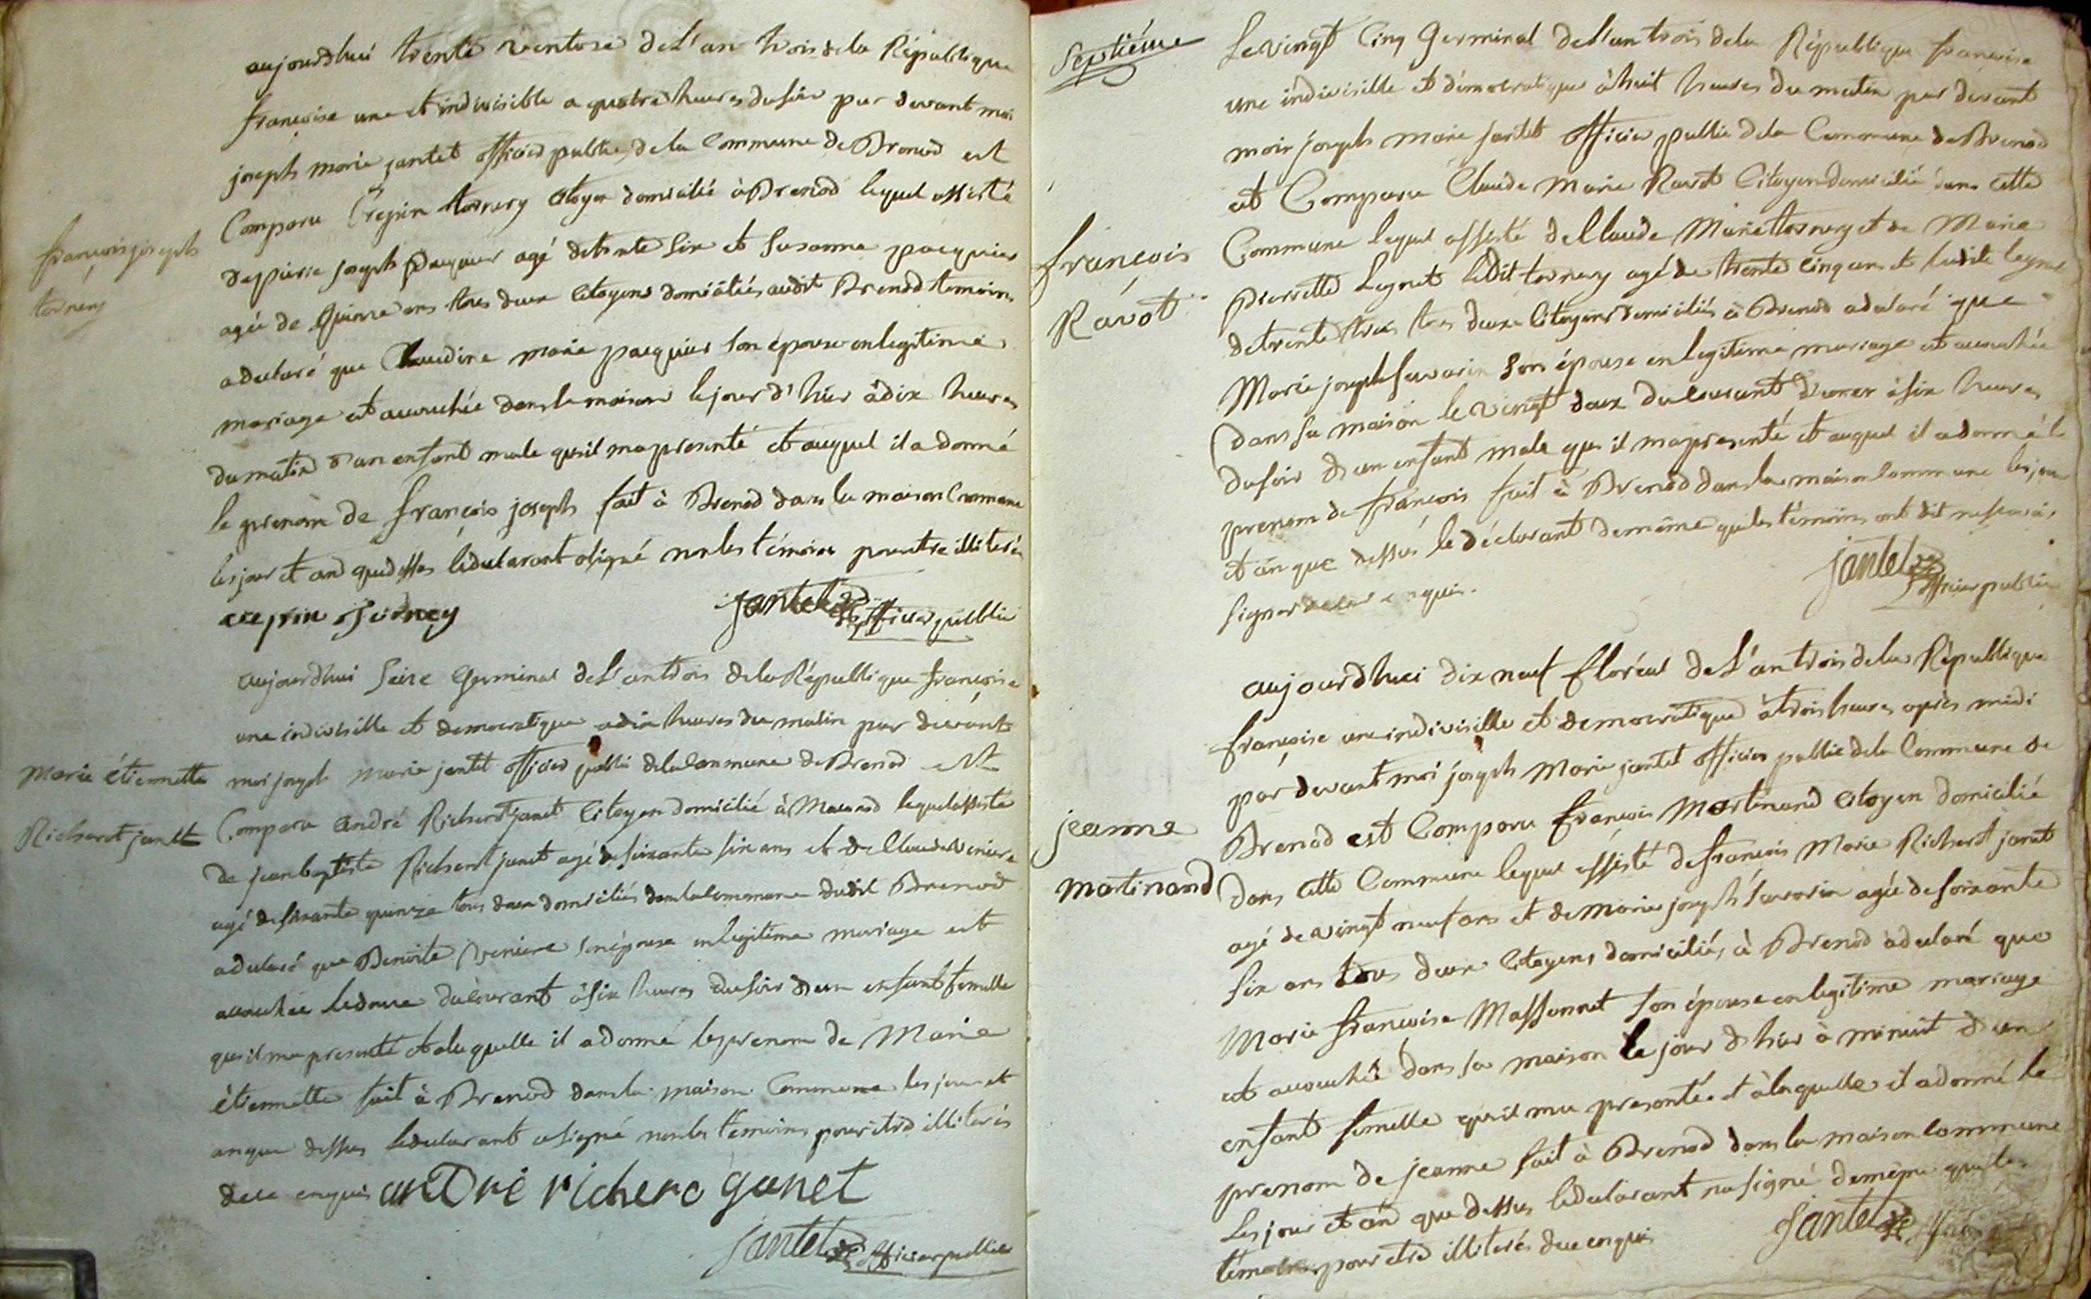 aujourdhui trente ventose de L'an trois de la République
françoise une et indivisible a quatre heures du soir par devant moi
joseph marie jantet officier public de la Commune de Brenod est
Comparu Crepin tornery Citoyen domicilié à Brenod lequel assisté
françois joseph
de pierre joseph pacquier agé de trente six et Susanne pacquier
tornery
agée de quinze ans tous deux Citoyens domiciliés audit Brenod temoins
a declaré que Claudine marie pacquier son épouse en legitime
mariage est accouchée dans la maison le jour d'hier à dix heures
du matin d'un enfant male qu'il ma presenté et auquel il a donné
le prenom de françois joseph fait à Brenod dans la maison Commune
les jour et and que dessus le declarant a signé non les témoins pour etre illiterés
crepin Jorney jantet officier public
aujourdhui Seize Germinal de L'an trois de la République françoise
une indivisille et democratique a dix heures du matin par devant
Marie étiennette
moi joseph marie jantet officier public de la Commune de Brenod est
Richerot janet
Comparu andré Richerot janet Citoyen domicilié à Macconod lequel assisté
de jean baptiste Richerot janet agé de soixante six ans et de Claude
agé de soixante quinze tous deux domiciliés dans la commune dudit Brenod
a declaré que Benoite son épouse en legitime mariage est
accouchée le douze du courant à six heures du soir d'un enfant femelle
qu'il ma presenté et a laquelle il a donné les prenom de Marie
étiennette fait à Brenod dans la maison Commune les jour et
an que dessus le declarant a signé non les témoins pour etre illiterés
de ce enquis andre richero ganet
jantet officier public
Septiéme
Le vingt Cinq Germinal de L'an trois de la République françoise
une indivisille et démocratique à huit heures du matin par devant
moi joseph marie jantet officier public de la Commune de Brenod
est Comparu Claude Marie Ravot Citoyen domicilié dans cette
françois
Commune lequel assisté de Claude Marie tornery et de Marie
Ravot
pierrette Leynet Ledit tornery agé de trente cinq ans et ladite Leynet
de trente trois tous deux Citoyens domiciliés à Brenod a declaré que
Marie joseph Savarin Son épouse en legitime mariage est accouchée
dans sa maison le vingt deux du courant à six heures
du soir d'un enfant male qu'il ma presenté et auquel il a donné le
prenom de françois fait à Brenod dans la maison Commune les jour
et an que dessus le déclarant de même que les témoins ont dit ne savoir
signer de ce enquis.
jantet officier public
aujourdhuci dix neuf floréal de L'an trois de la République
françoise une indivisille et démocratique à trois heures après midi
par devant moi joseph Marie jantet officier public de la Commune de
jeanne
Brenod est Comparu françois Martinand Citoyen domicilié
martinand
dans cette Commune lequel assisté de françois Marie Richerot janet
agé de vingt neuf ans et de Marie joseph Savarin agée de soixante
six ans tous deux Citoyens domiciliés à Brenod a declaré que
Marie françoise Massonnet son épouse en legitime mariage
est accouchée dans sa maison le jour d'hier à minuit d'un
enfant femelle qu'il ma presentée et à laquelle il a donné le
prenom de jeanne fait à Brenod dans la maison Commune
Les jour et an que dessus le declarant na signé de même que les
témoins pour etre illiterés de ce enquis jantet officier